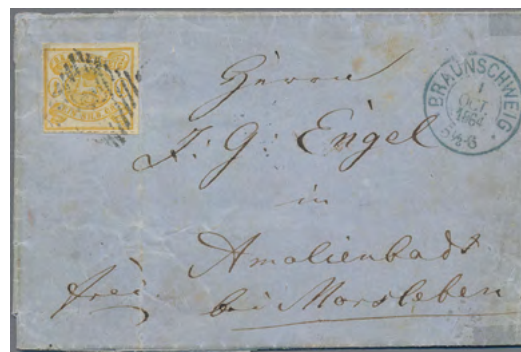 BRAUNSCHWEIG
1
OCT
1864
5½-6
Herrn
J: G: Engel
in
Amalienbad
bei Morsleben
frei